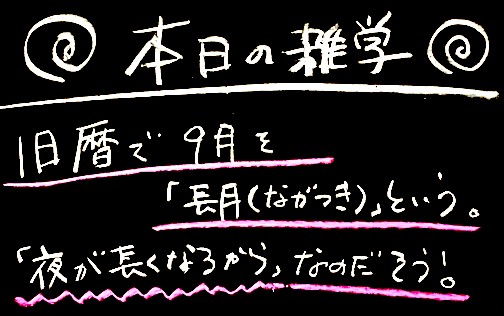 本日の雑学
旧暦で9月を
「長月(ながつき)」という。
「夜が長くなるから」なのだそう!